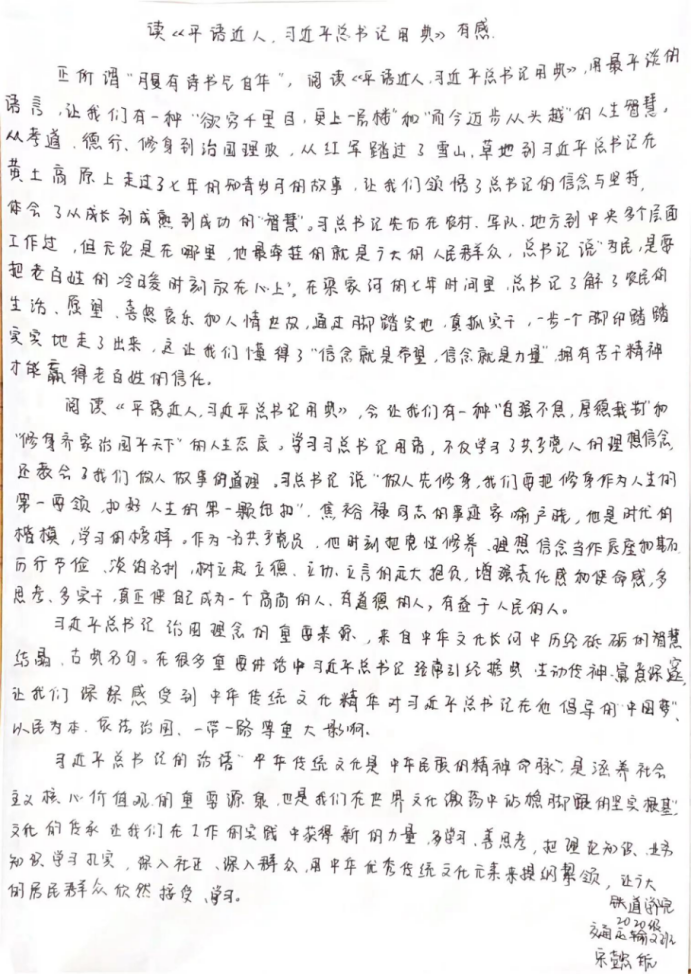 读《平语近人,习近平总书记用典》有感.
正所谓"腹有诗书气自华",阅读《平语近人,习近平总书记用典》,用最平淡的
语言,让我们有一种"欲穷千里目,更上一层楼"和"而今迈步从头越"的人生智慧。
从孝道、德行、修身到治国理政,从红军踏过了雪山,草地到习近平总书记在
黄土高原上走过了七年的知青岁月的故事,让我们领悟了总书记的信念与坚持,
体会了从成长到成熟到成功的"智慧"。习总书记先后在农村、军队、地方到中央多个层面
工作过,但无论是在哪里,他最牵挂的就是广大的人民群众,总书记说"为民,是要
把老百姓的冷暖时刻放在心上",在梁家河的七年时间里,总书记了解了农民的
生活、愿望、喜怒哀乐和人情世故,通过脚踏实地,真抓实干,一步一个脚印踏踏
实实地走了出来,这让我们懂得了"信念就是希望,信念就是力量",拥有苦干精神
才能赢得老百姓的信任。
阅读《平语近人,习近平总书记用典》,会让我们有一种"自强不息,厚德载物"和
"修身齐家治国平天下"的人生态度。学习习总书记用语,不仅学习了共产党人的理想信念
还教会了我们做人做事的道理。习总书记说"做人先修身,我们要把修身作为人生的
第一要领,扣好人生的第一颗纽扣",焦裕禄同志的事迹家喻户晓,他是时代的
楷模,学习的榜样。作为一名共产党员,他时刻把党性修养、理想信念当作底座和基石
厉行节俭、淡泊名利,树立起立德、立功、立言的远大抱负,增强责任感和使命感,多
思考、多实干,真正使自己成为一个高尚的人,有道德的人,有益于人民的人。
习近平总书记治国理念的重要来源,来自中华文化长河中历经砥砺的智慧
结晶,古典名句。在很多重要讲话中习近平总书记经常引经据典,生动传神,寓意深邃,
让我们深深感受到中华传统文化精华对习近平总书记在他倡导的"中国梦"、
以民为本、依法治国、一带一路等重大影响。
习近平总书记的治语"中华传统文化是中华民族的精神命脉",是涵养社会
主义核心价值观的重要源泉,也是我们在世界文化激荡中站稳脚跟的坚实根基",
文化的传承让我们在工作的实践中获得新的力量,多学习、善思考,把理论知识、业务
知识学习扎实,深入社区、深入群众,用中华优秀传统文化元素来提纲挈领,让广大
的居民群众欣然接受、学习。
铁道学院
2020级
交通运输2班